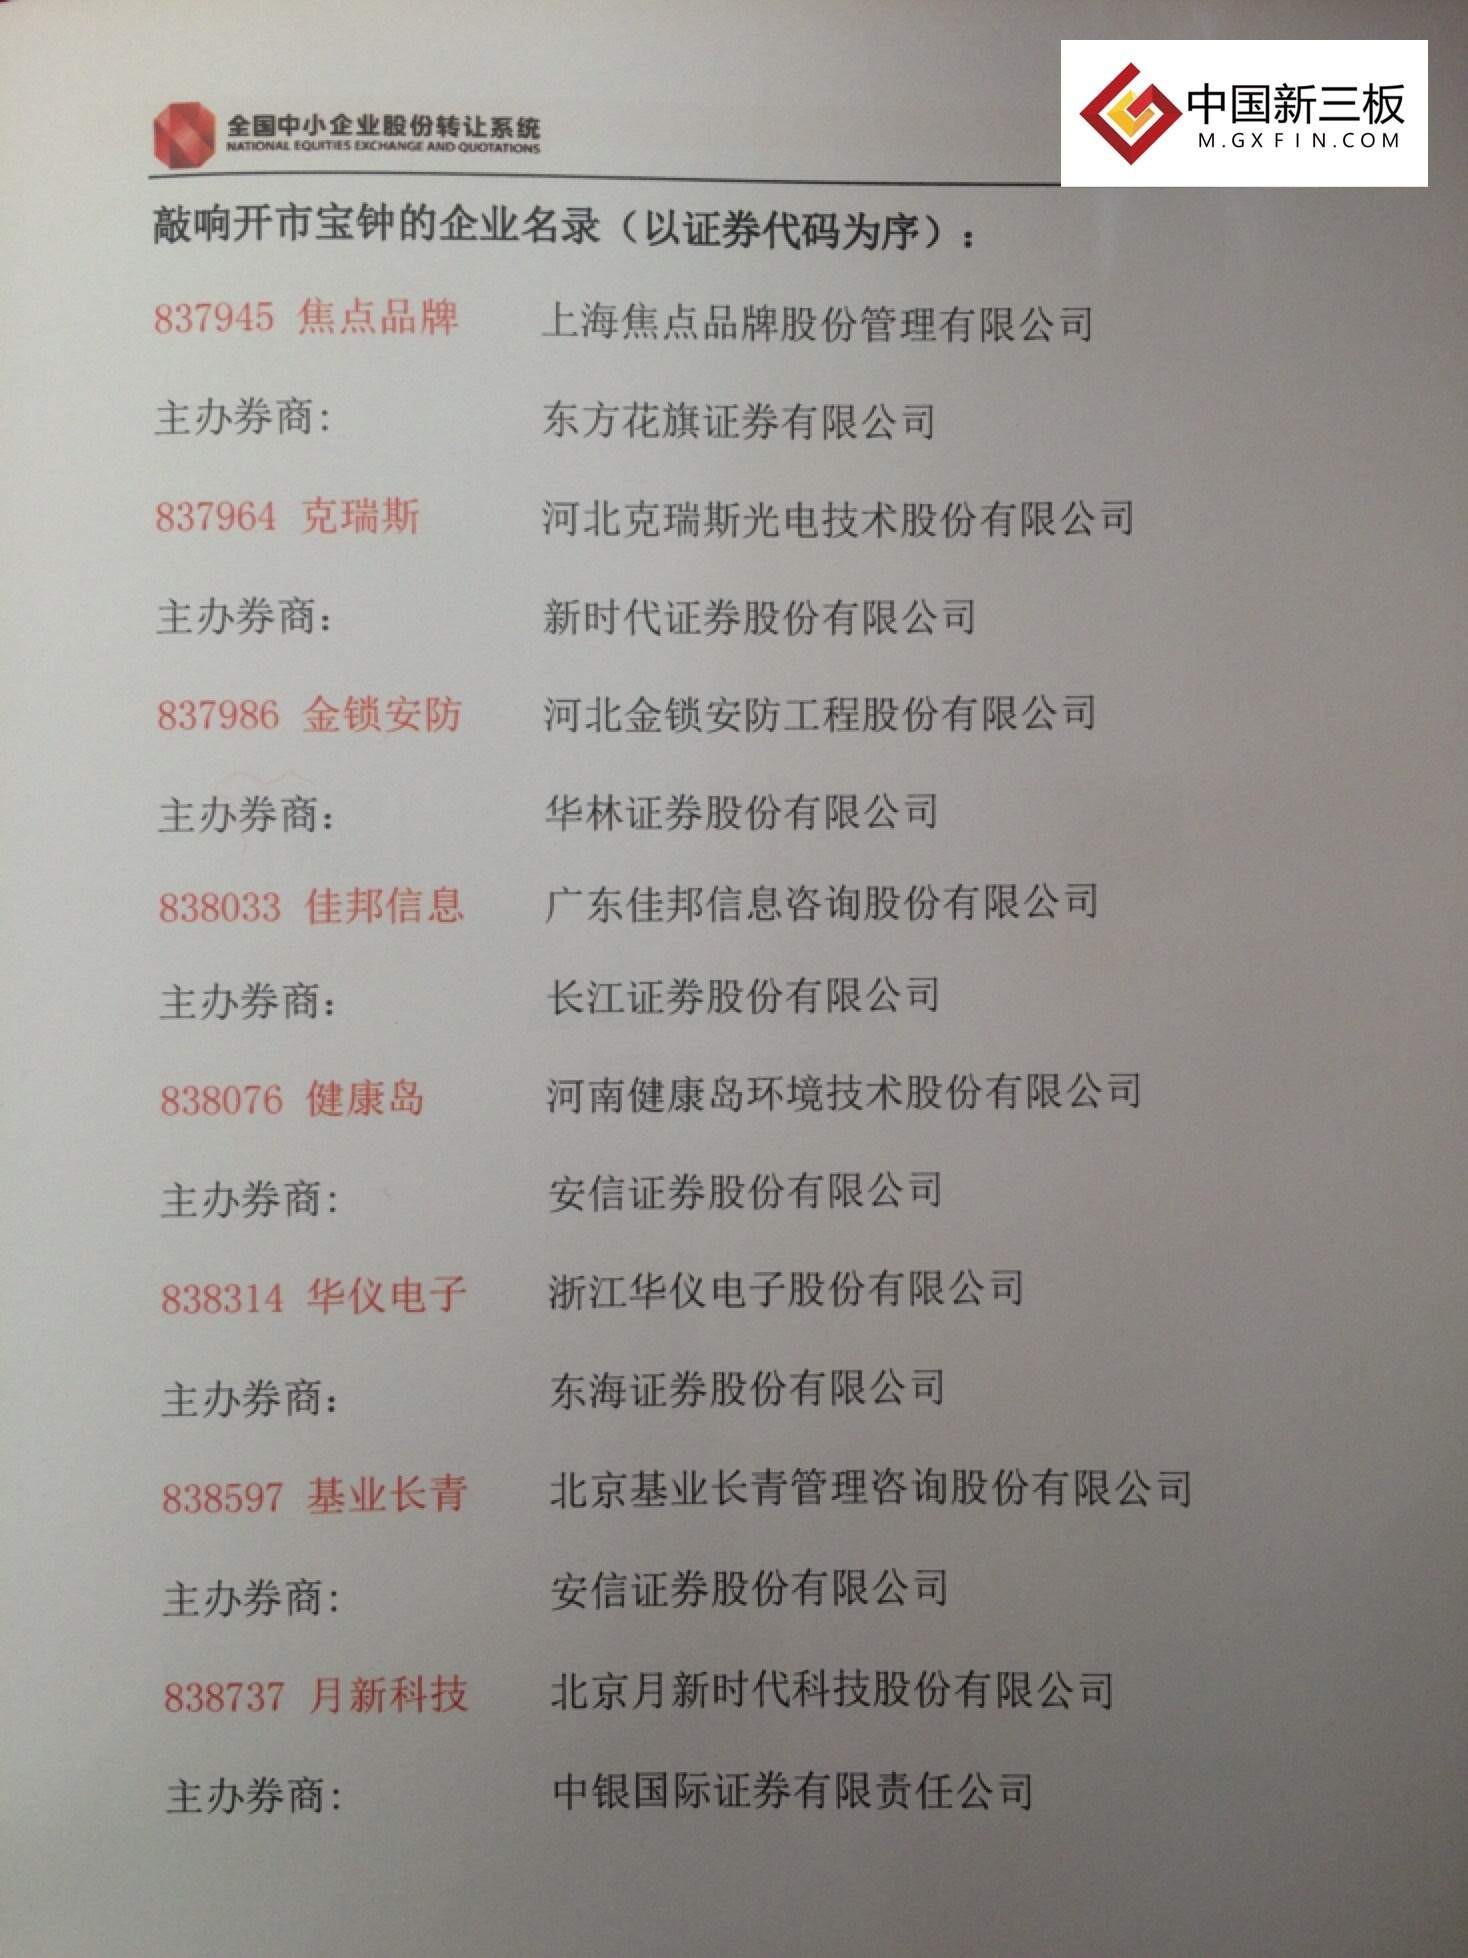 中国新三板
M.GXFIN.COM
全国中小企业股份转让系统
NATIONAL EQUITIES EXCHANGE AND QUOTATIONS
敲响开市宝钟的企业名录（以证券代码为序）：
837945 焦点品牌 上海焦点品牌股份管理有限公司
主办券商: 东方花旗证券有限公司
837964 克瑞斯 河北克瑞斯光电技术股份有限公司
主办券商： 新时代证券股份有限公司
837986 金锁安防 河北金锁安防工程股份有限公司
主办券商： 华林证券股份有限公司
838033 佳邦信息 广东佳邦信息咨询股份有限公司
主办券商： 长江证券股份有限公司
838076 健康岛 河南健康岛环境技术股份有限公司
主办券商: 安信证券股份有限公司
838314 华仪电子 浙江华仪电子股份有限公司
主办券商： 东海证券股份有限公司
838597 基业长青 北京基业长青管理咨询股份有限公司
主办券商: 安信证券股份有限公司
838737 月新科技 北京月新时代科技股份有限公司
主办券商: 中银国际证券有限责任公司